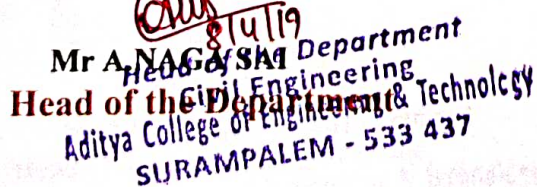 8/4/19
Mr A.NAGA SAI
Head of the Department
Head of the Department
Civil Engineering
Aditya College of Engineering & Technology
SURAMPALEM - 533 437